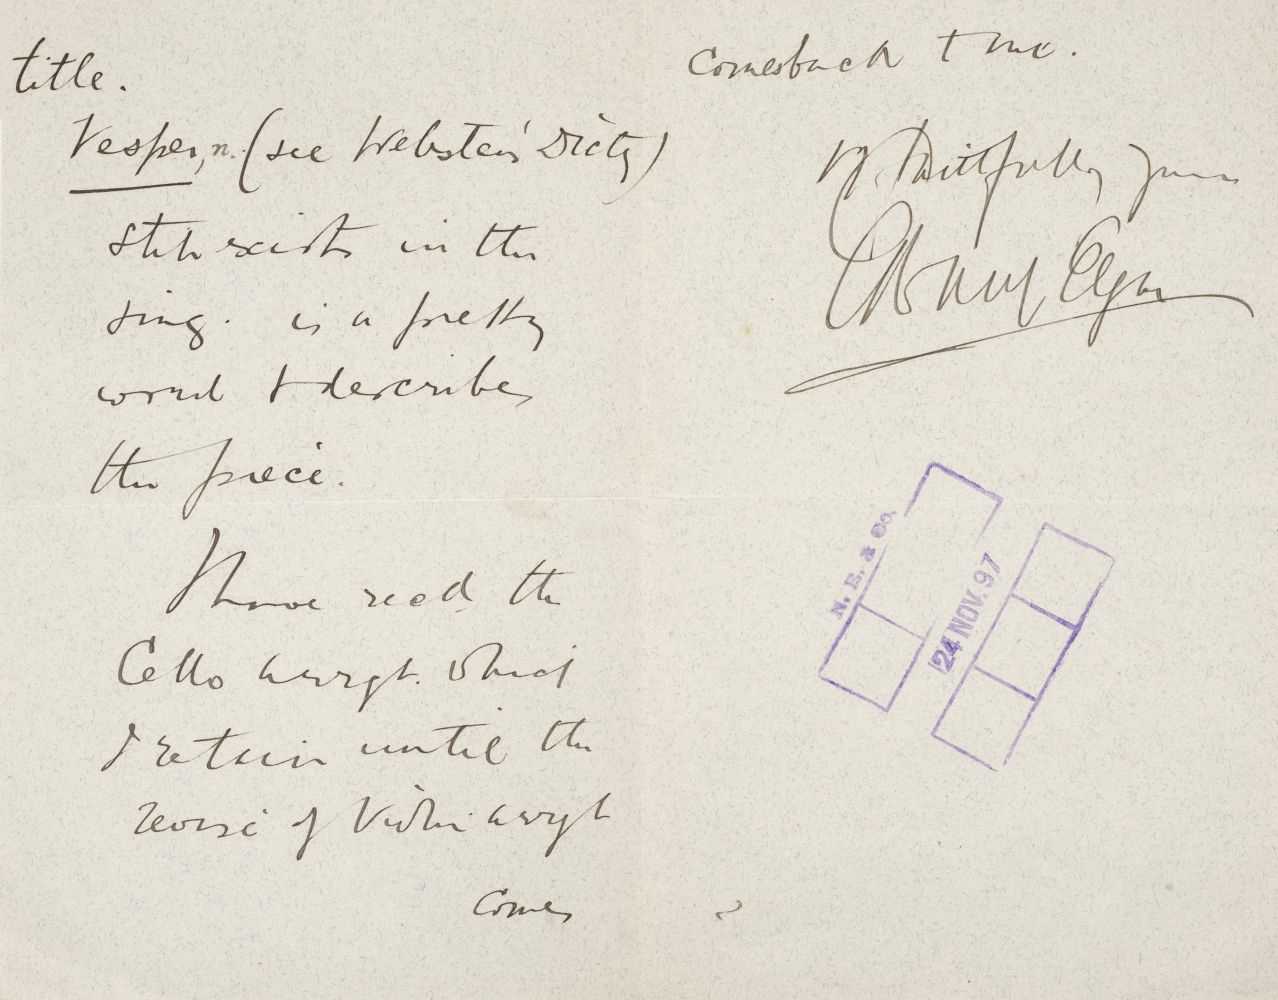 title.
Vesper, n. (see Webster's Dicty)
still exists in the
sing. is a pretty
word & describes
the piece.
I have recd. the
Cello arrgt. which
I retain until the
revise of Violin arrgt
comes
comes back to me.
Very Faithfully yours
Edward Elgar
N. E. & Co.
24 NOV. 97